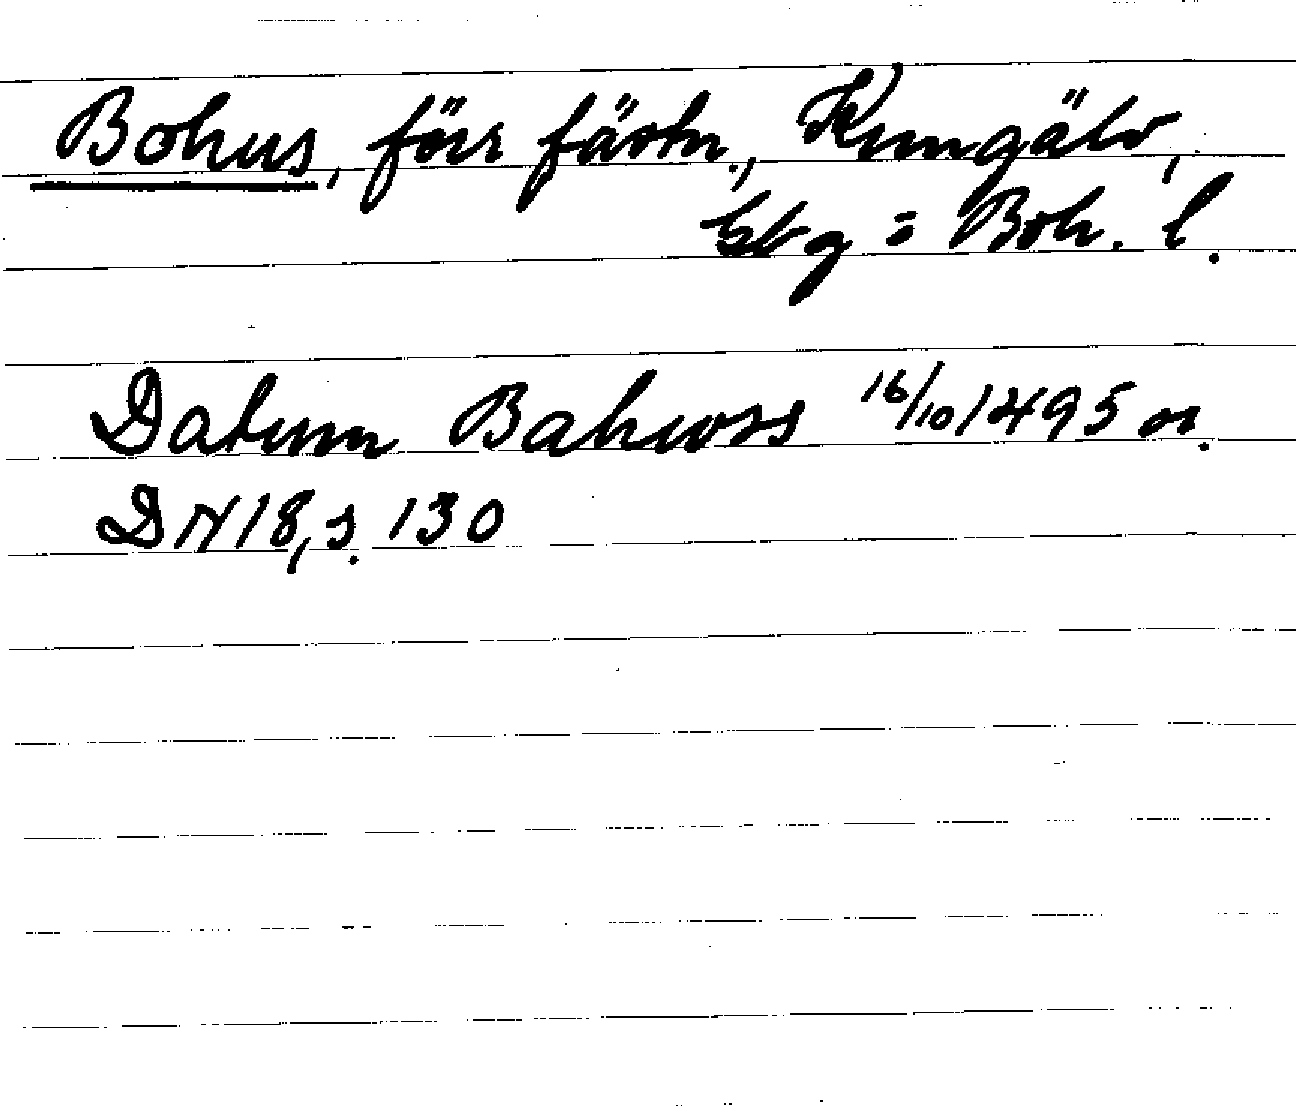 Bohus, förr fästn., Kungälv,
Gbg o Boh. l.
Datum Bahwss 16/10 1495 or.
DN 18, s. 130